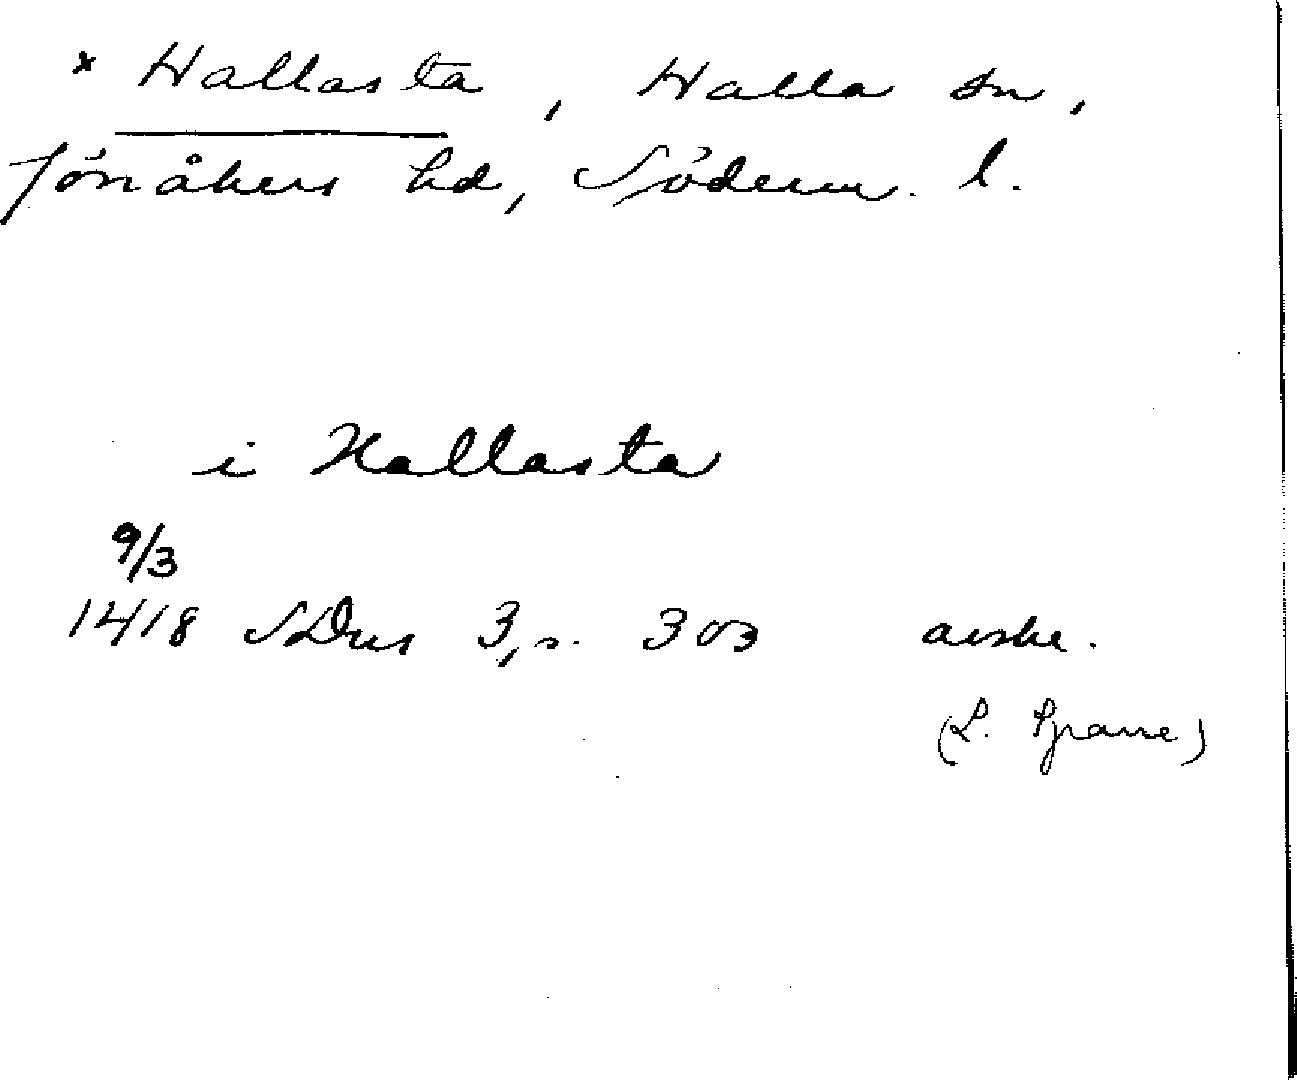 * Hallasta, Halla sn,
Jönåkers hd, Söderm. l.
i Hallasta
9/3
1418 SDns 3, s. 303 avskr.
(L. )